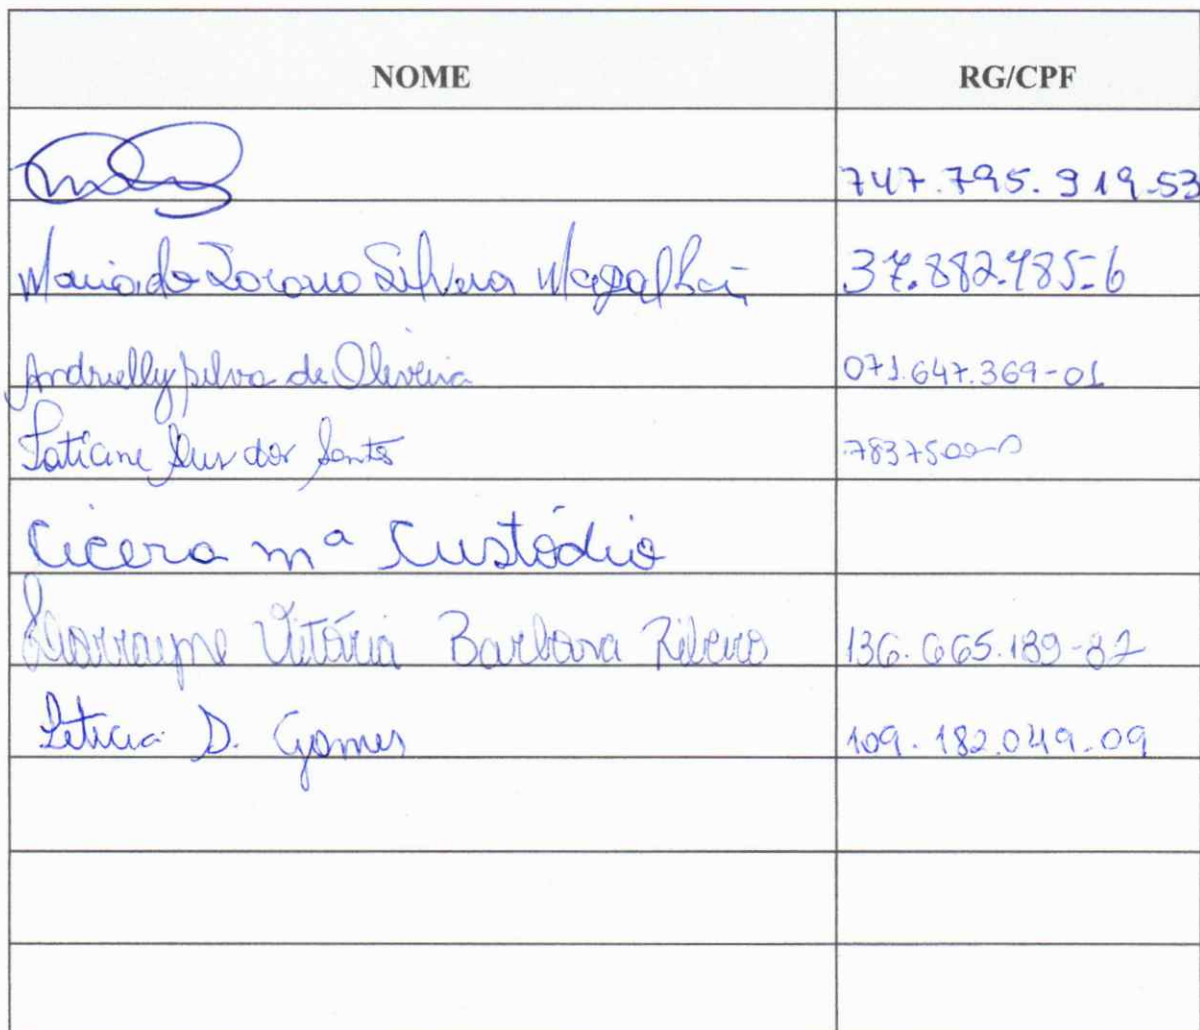 NOME RG/CPF
747.795.919-53
Silva Magalhãe 37.882.485-6
Andrielly Silva de Oliveira 071.647.369-01
Tatiane dos Santos
Cicera mª Custódio
Vitória Barbosa Ribeiro 136.665.189-87
Leticia D. Gomes 109.182.049-09